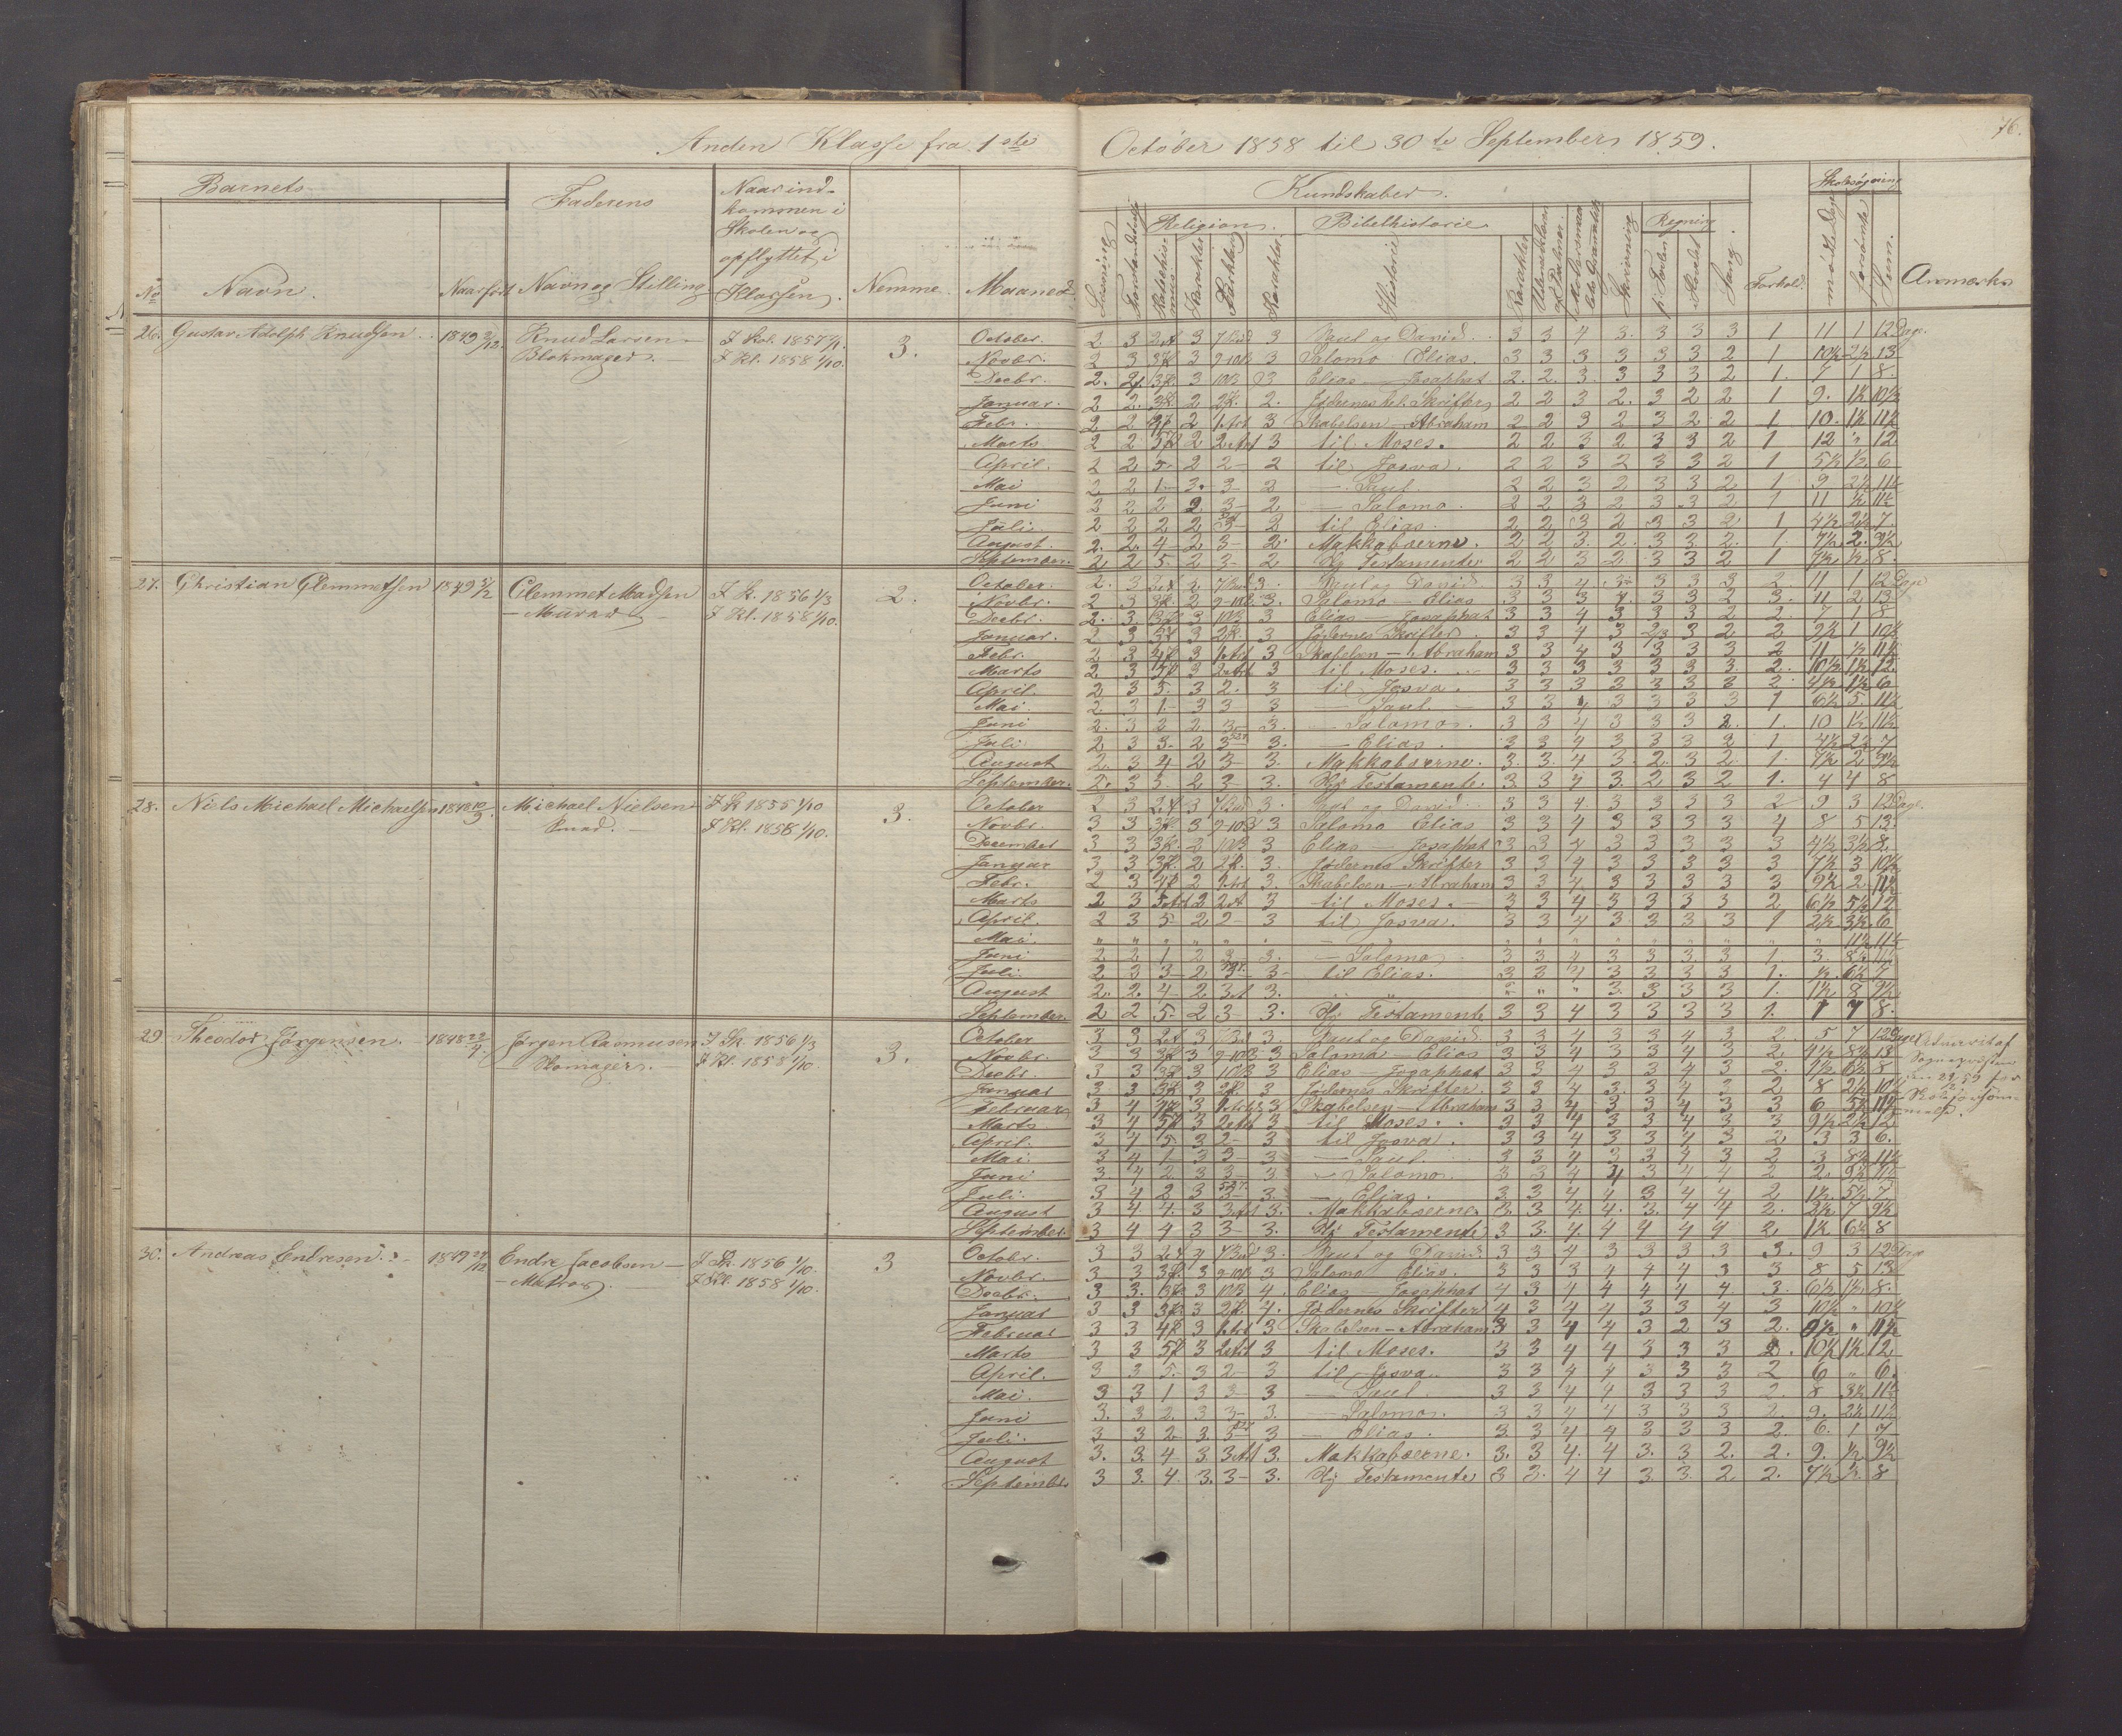 Anden Klasse fra 1ste October 1858 til 30te September 1859.
76.
Barnets
Faderens
Naar ind-
kommen i
Skolen og
opflyttet i
Klassen.
No
Navn.
Naar født
Navn og Stilling
Nemme
Maaned
Kundskaber.
Religion.
Bibelhistorie
Regning
Skolesøgning
Læsning
Karakter
Historie
Karakter
Skrivning
Sang.
Forhold.
mødte Dage
forsømte
Sum.
Anmærkn
26. Gustav Adolph Knudsen 1849
Knud Larsen
Blokmager.
I Skol. 1857
I Kl. 1858 1/10.
3.
October. 2 3 3 7 Bud 3 Saul og David 3 3 4 3 3 3 3 1 11 1 12 Dage.
Novbr. 2 3 3 9-10B 3 Salomo Elias. 3 3 3 3 3 3 2 1 10½ 2½ 13
Decbr. 2. 2 3 10B 3 Elias — Josaphat 2. 2. 3. 3 3 3 2 1. 7 1 8.
Januar. 2 2. 2 2. Jødernes hel. Skrifter 2 2 3 2. 3 2 2 1 9. 1½ 10½
Febr. 2 2 2 1 Art 3 Skabelsen — Abraham 2 2 3 2 3 2 2 1 10. 1½ 11½
Marts 2 2 2 2 Art 3 til Moses. 2 2 3 2 3 3 2 1 12 " 12
April. 2 2 5. 2 2 – 2 til Josva. 2 2 3 2 3 3 2 1 5½ ½ 6
Mai 2 2 1. 3. 3 – 2 — Saul 2 2 3 2 3 3 2 1 9 2½ 11½
Juni 2 2 2 2 3 – 2 — Salomo. 2 2 3 2 3 3 2 1 11 ½ 11½
Juli 2 2 2 2 3 – 2 til Elias. 2 2 3 2 3 3 2 1 4½ 2½ 7.
August. 2. 2. 4 – 2 3 – 2. Makkabæerne. 2 2 3. 2. 3 3 2. 1. 7½ 2. 9½
September. 2 2 5 2 3 – 2 Ny Testamente 2 2 3 2. 3 3 2 1 7½ ½ 8.
27. Christian Clemmetsen 1849
Clemmet Madsen
— Murer
I S. 1856 1/3
I Kl. 1858 1/10.
2.
October. 2. 3 2 7 Bud 3. Saul og David. 3 3 4 3 3 3 3 2. 11 1 12 Dage
Novbr. 2 3 2 9-10B. 3. Salomo — Elias 3 3 3 3 3 2 3. 11 2 13.
Decbr. 2. 3. 3 10B 3 Elias — Josaphat 3 3 4 3 3 3 2 2. 7 1 8
Januar. 2 3 3 3 Jødernes Skrifter. 3 3 4 3 2/3 3 2 2 9½ 1 10½
Febr. 2 3 3 1 Art 3 Skabelsen — Abraham 3 3 4 3 3 3 3 2 11 ½ 11½
Marts 2 3 3 2 Art 3 til Moses. 3 3 3 3 3 3 3 2. 10½ 1½ 12.
April. 2 3 5. 3 2. 3 til Josva. 3 3 3 3 3 3 3 2. 4½ 1½ 6
Mai. 2 3 1. 3 3 3 — Saul 3 3 4 3 3 3 3 1 6½ 5. 11½
Juni 2. 3 2 2 3 – 3. — Salomo. 3 3 4 3 3 3 2. 1. 10 1½ 11½
Juli 2 3 3. 2 3 3. — Elias. 3 3 4 3 3 3 2 1 4½ 2½ 7
August 2. 3 4 2 3 – 3. Makkabæerne. 3. 3. 4 3. 2. 3 2. 1. 7½ 2 9½
September. 2. 3 5. 2 3 – 3. Ny Testamente. 3. 3 4 3. 2 3 2 1. 4 4 8
28. Niels Michael Michaelsen 1848
Michael Nielsen
Smed. —
I S. 1855 1/10
I Kl. 1858 1/10.
3.
October 2 3 3 7 Bud 3. Saul og David 3 3 4. 3 3 3 3 2 9 3 12 Dage.
Novbr. 3 3 3 9-10B 3 Salomo Elias 3 3 4 3 3 3 3 4 8 5 13.
December 3 3 2 10B 3 Elias — Josaphat 3 3 4 3 3 3 3 3 4½ 3½ 8.
Januar 3 3 2 3. Jødernes Skrifter 3 3 4 3 3 3 3 3 7½ 3 10½
Febr. 2 3 2 1 Art 3. Skabelsen — Abraham 3 3 4. 3 3 3 3 3 9½ 2. 11½
Marts 2 3 5 Art 2 2 Art 3 til Moses. — 3 3 4 3 3 3 3 2 6½ 5½ 12
April. 2 3 5 – 2 2 – 3 til Josva. 3 3 4 3 3 3 3 1 2½ 3½ 6
Mai. " " " " " " " " " " 11½ 11½
Juni 2 2 1 2 3 3. — Salomo 3 3 4 3 3 3 3 1. 3. 8½ 11½
Juli. 2 3 3 – 2 3 – 3 – til Elias. 3 3 4 3 3 3 3 1. ½ 6½ 7
August 2. 2. 4 – 2. 3 Art 3. " " " 3. 3 3 3 1. 1½ 8 9½
September. 2 2 5. 2 3 – 3. Ny Testamente 3 3 4 3 3 3 3 1. 1 7 8.
29. Theodor Jørgensen. 1848
Jørgen Rasmusen
— Skomager. —
I Sk. 1856 1/3
I Kl. 1858 1/10.
3.
October 3 3 3 7 Bud 3 Saul og David 3 3 4 3 3 4 3 2. 5 7 12 Dage
Novbr. 3 3 3 9-10B 3 Salomo — Elias 3 3 4 3 3 4 3 2. 4½ 8½ 13
Decbr. 3 3 3 10B 3 Elias — Josaphat 3 3 4 3 3 4 3 2. 1½ 6½ 8
Januar 3 3 3 3 Jødernes Skrifter 3 3 4 3. 3 4 3 2 8 2½ 10½
Februar 3 4 3 1 Art 3 Skabelsen — Abraham 3 3 4 3 3 4 3 3 6 5½ 11½
Marts 3 4 3 2 Art 3 til Moses. 3 3 4 3 3 4 3 3 9½ 2½ 12
April. 3 4 5. 3 2 – 3 til Josva. 3 3 4 3 3 4 3 2 3 3 6.
Mai. 3 4 1 3 3 – 3 — Saul 3 3 4 3 3 4 3 2 3 8½ 11½
Juni 3 4 2 3 3 – 3 — Salomo. 3 3 4 4 3 4 4 2 2. 9½ 11½
Juli. 3 4 2 3 3 – 3. — Elias. 3 3 4 4 3 4 4 2 1½ 5½ 7
August 3 4 4. 3 3 Art 3. Makkabæerne. 3. 3 4. 4. 3. 4 4 2. 2½ 7 9½
September. 3 4 4 3 3 – 3. Ny Testamente 3 3. 4 4 4 4 4 2 1½ 6½ 8
Advaret af
Sognepræsten
den
for
Skoleforsøm-
melse.
30. Andreas Endresen. 1849
Endre Jacobsen —
— Matros. —
I Sk. 1856 1/10.
I Kl. 1858 1/10.
3
Octobr. 3 3 4 7 Bud 3. Saul og David. 3 3 4 3 3 3 3 3. 9 3 12 Dage
Novbr. 3 3 3 9-10B 3 Salomo Elias. 3 3 3 4 4 4 3 3 8 5 13.
Decbr. 3 3. 3 10B 4. Elias — Josaphat 4 3 4 4 4 4 4. 3. 6½ 1½ 8.
Januar 3 3 3 4. Jødernes Skrifter 4 3 4 4 3 3 4 3 10½ " 10½
Februar 3 3 3 1 Art 3 Skabelsen — Abraham 3 3 4 4 3 2 3 2. " 11½
Marts 3 3 3 2 Art 3 til Moses. 3 3 4 4 3 3 3 2. 10½ 1½ 12
April. 3 3 5. 3 2 – 3 til Josva. 3 3 4 4 3 3 3 2 6 " 6.
Mai. 3 3 1 3 3 – 3 — Saul 3 3 4 4 3 3 3 2. 8 3½ 11½
Juni 3. 3 2. 3 3 – 3. — Salomo. 3 3 4 4 3 3 3 2. 9. 2½ 11½
Juli. 3 3 2 – 3. 3 3 — Elias. 3 3 4 4 3 3 3 2. 6. 1 7
August 3. 3. 4 – 3. 3 Art 3. Makkabæerne. 3. 3 4. 4 3. 3 2. 2. 9. ½ 9½
September 3 3. 4. 3. 3 – 3. Ny Testamente 3 3. 4 4 3. 3. 2 2. 7½ ½ 8